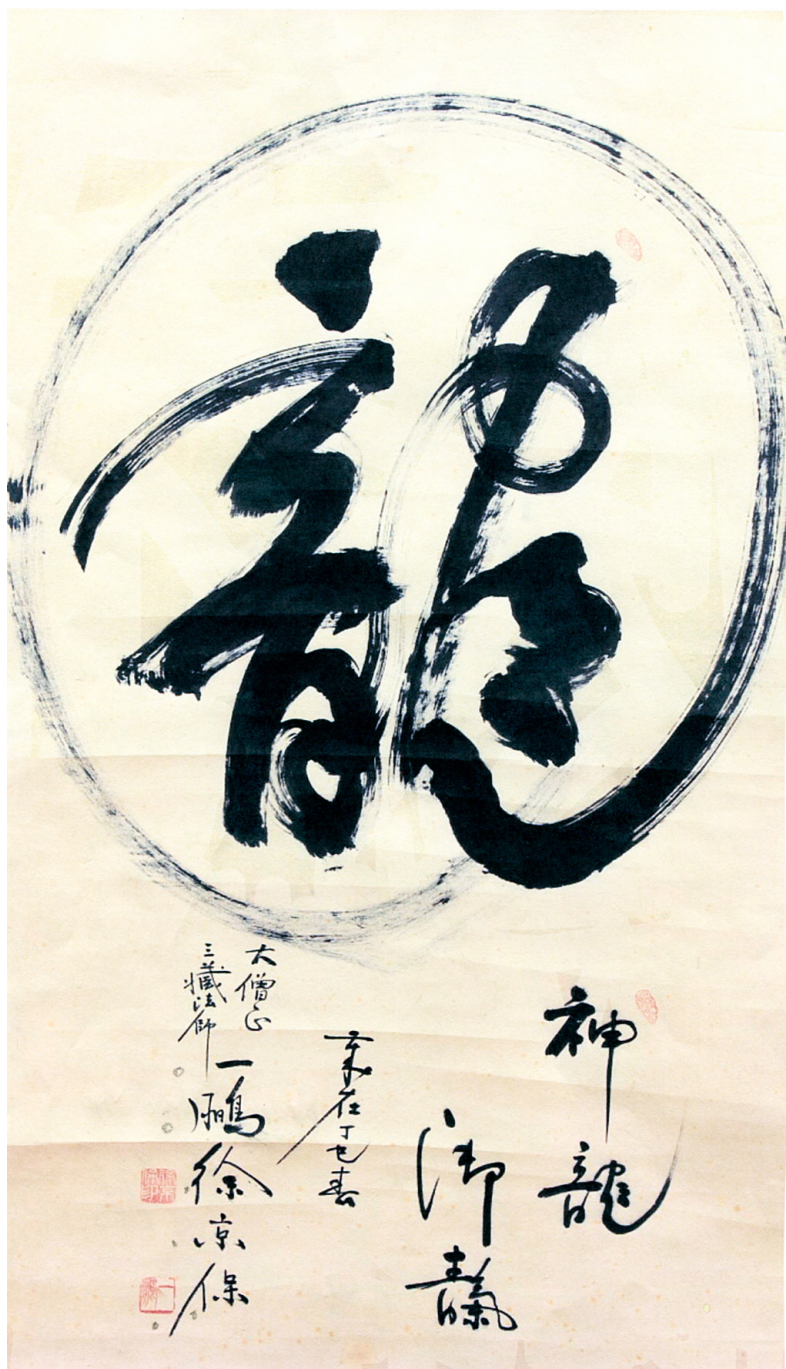 龍
神龍
御靝
歲在丁巳春
大僧正
三藏法師
一鵬徐京保